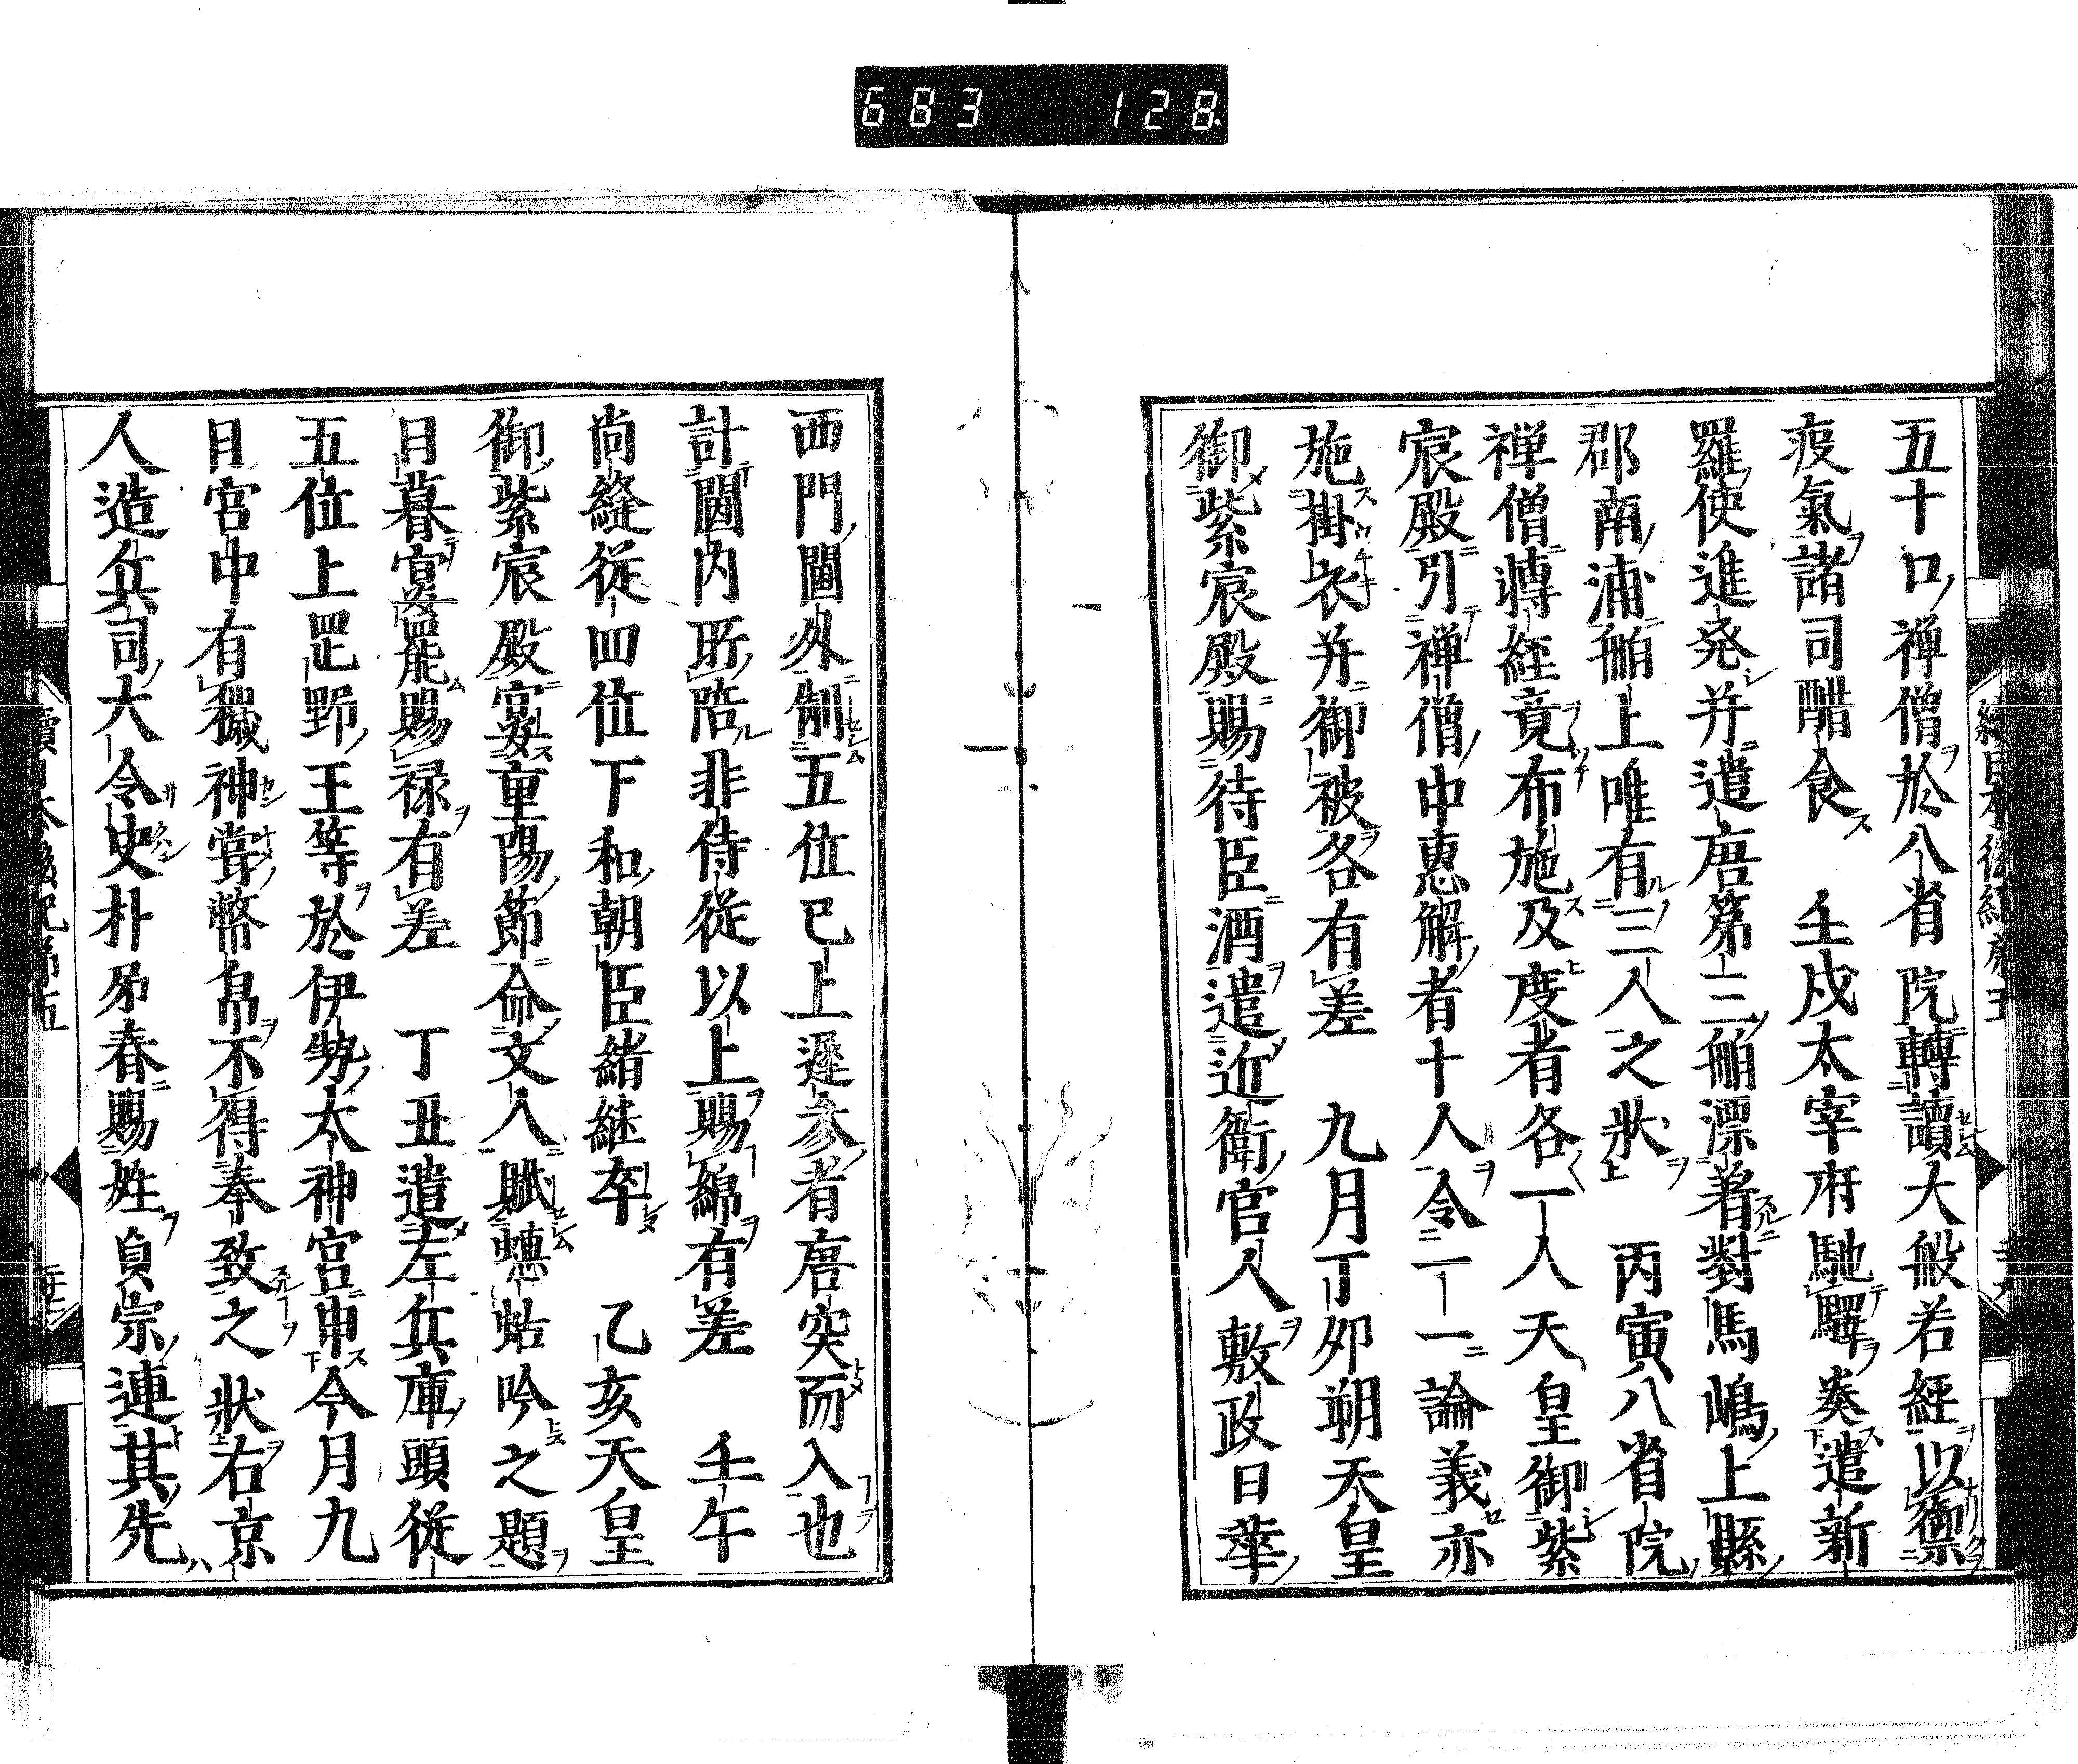 683 128
五十口禅僧於八省院轉讀大般若経以禦
疫氣諸司醋食 壬戌太宰府馳驛奏遣新
羅使進発并遣唐第三舶漂着對馬嶋上縣
郡南浦舶上唯有三人之状 丙寅八省院
禅僧轉経竟布施及度者各一人天皇御紫
宸殿引禅僧中恵解者十人令一一論義亦
施掛衣并御被各有差 九月丁卯朔天皇
御紫宸殿賜待臣酒遣近衛官人敷政日華
西門閤外制五位已上遅参者唐突而入也
計閤内所陪非侍従以上賜綿有差 壬午
尚縫従四位下和朝臣緒継卒 乙亥天皇
御紫宸殿宴重陽節命文人賦蟪蛄吟之題
日暮宴罷賜禄有差 丁丑遣左兵庫頭従
五位上岡野王等於伊勢太神宮申今月九
日宮中有穢神甞幣帛不得奉致之状右京
人造兵司大令史朴弟春賜姓貞宗連其先